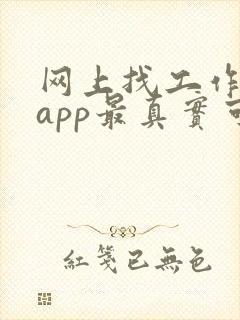 网上找工作
app最真實
紅箋已無色